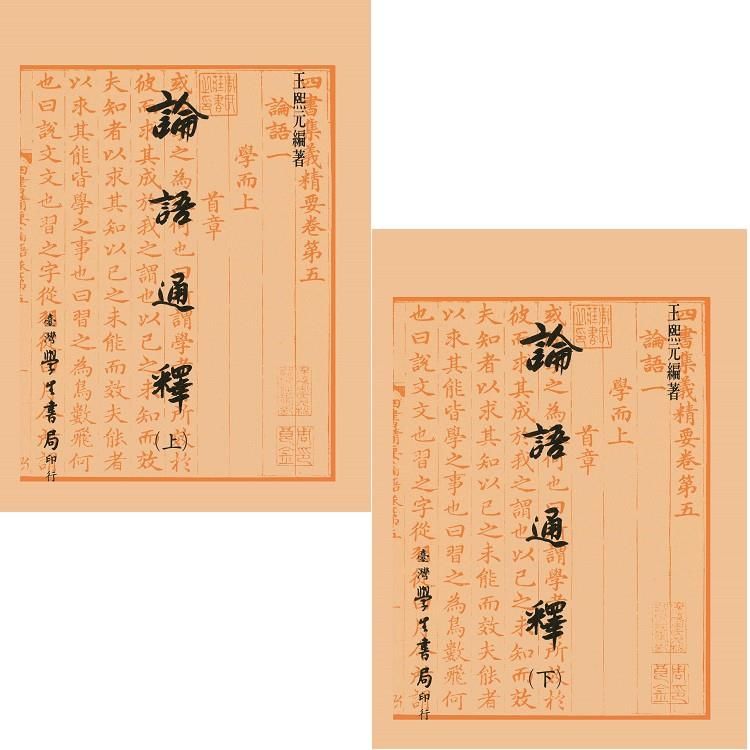 四書集義精要卷第五
王熙元編著
論語一
學而上
首章
論語通釋
(上)
或之為何也曰謂學於
彼而求其成於我之謂也以己之未知而效
夫知者以求其知以己之未能而效夫能者
以求其能皆學之事也曰習之為鳥數飛何
也曰說文文也習之字從
臺灣學生書局印行
四書集義精要卷第五
王熙元編著
論語一
學而上
首章
論語通釋
(下)
或之為何也曰謂學所於
彼而求其成於我之謂也以己之未知而效
夫知者以求其知以己之未能而效夫能者
以求其能皆學之事也曰習之為鳥數飛何
也曰說文文也習之字從
臺灣學生書局印行